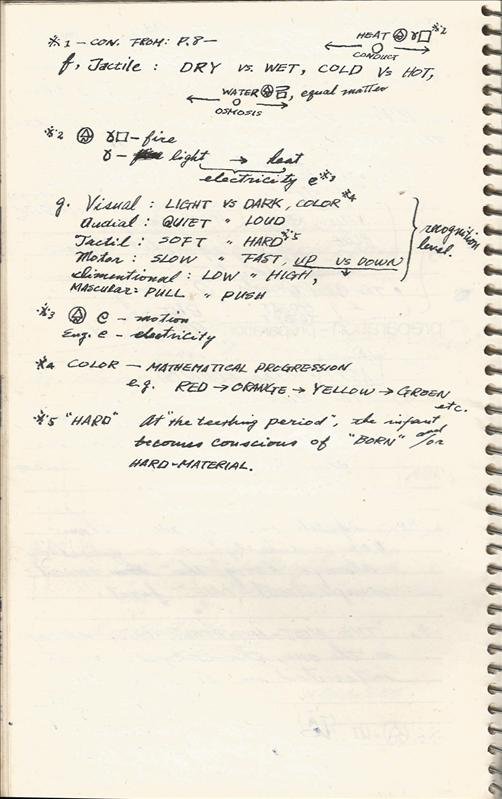 ※1 – CON. FROM: P.8 –
HEAT ४□ ※2
CONDUCT
f, Tactile : DRY vs. WET, COLD Vs HOT,
WATER, equal matter
OSMOSIS
※2 ४□ – fire
४ – light → heat
electricity e ※3
g. Visual : LIGHT VS DARK, COLOR ※4
Audial : QUIET " LOUD
Tactil : SOFT " HARD ※5
Motor : SLOW " FAST, UP VS DOWN
dimentional : LOW " HIGH, ↓
MASCULAR : PULL " PUSH
recognition level.
※3 e – motion
Eng. e – electricity
※4 COLOR – MATHEMATICAL PROGRESSION
e.g. RED → ORANGE → YELLOW → GREEN etc.
※5 "HARD" At "the teething period", the infant
becomes conscious of "BORN" and/or
HARD-MATERIAL.